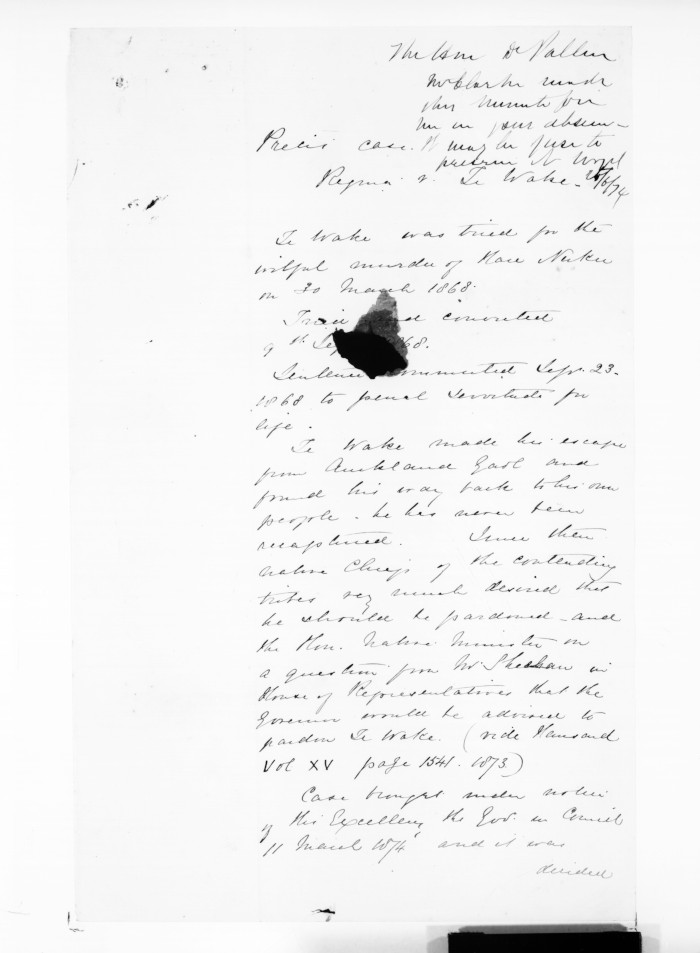 The Hon Dr Pollen
Mr Clarke made
this minute for
me in your absence
Precis case. It may be just to
preserve it
Regina v. Te Wake. 26/6/74
Te Wake was tried for the
wilful murder of Hare Neku
on 30 March 1868.
Tried and convicted
9th Sep 1868.
Sentence commuted Sepr. 23.
1868 to penal Servitude for
life.
Te Wake made his escape
from Auckland Gaol and
found his way back to his own
people - he has never been
recaptured. Since then
native Chiefs of the contending
tribes very much desired that
he should be pardoned - and
the Hon. Native Minister on
a question from Mr Sheehan in
House of Representatives that the
Governor would be advised to
pardon Te Wake. (vide Hansard
Vol XV page 1541. 1873)
Case brought under notice
of His Excellency the Gov. in Council
11 March 1874 and it was
decided